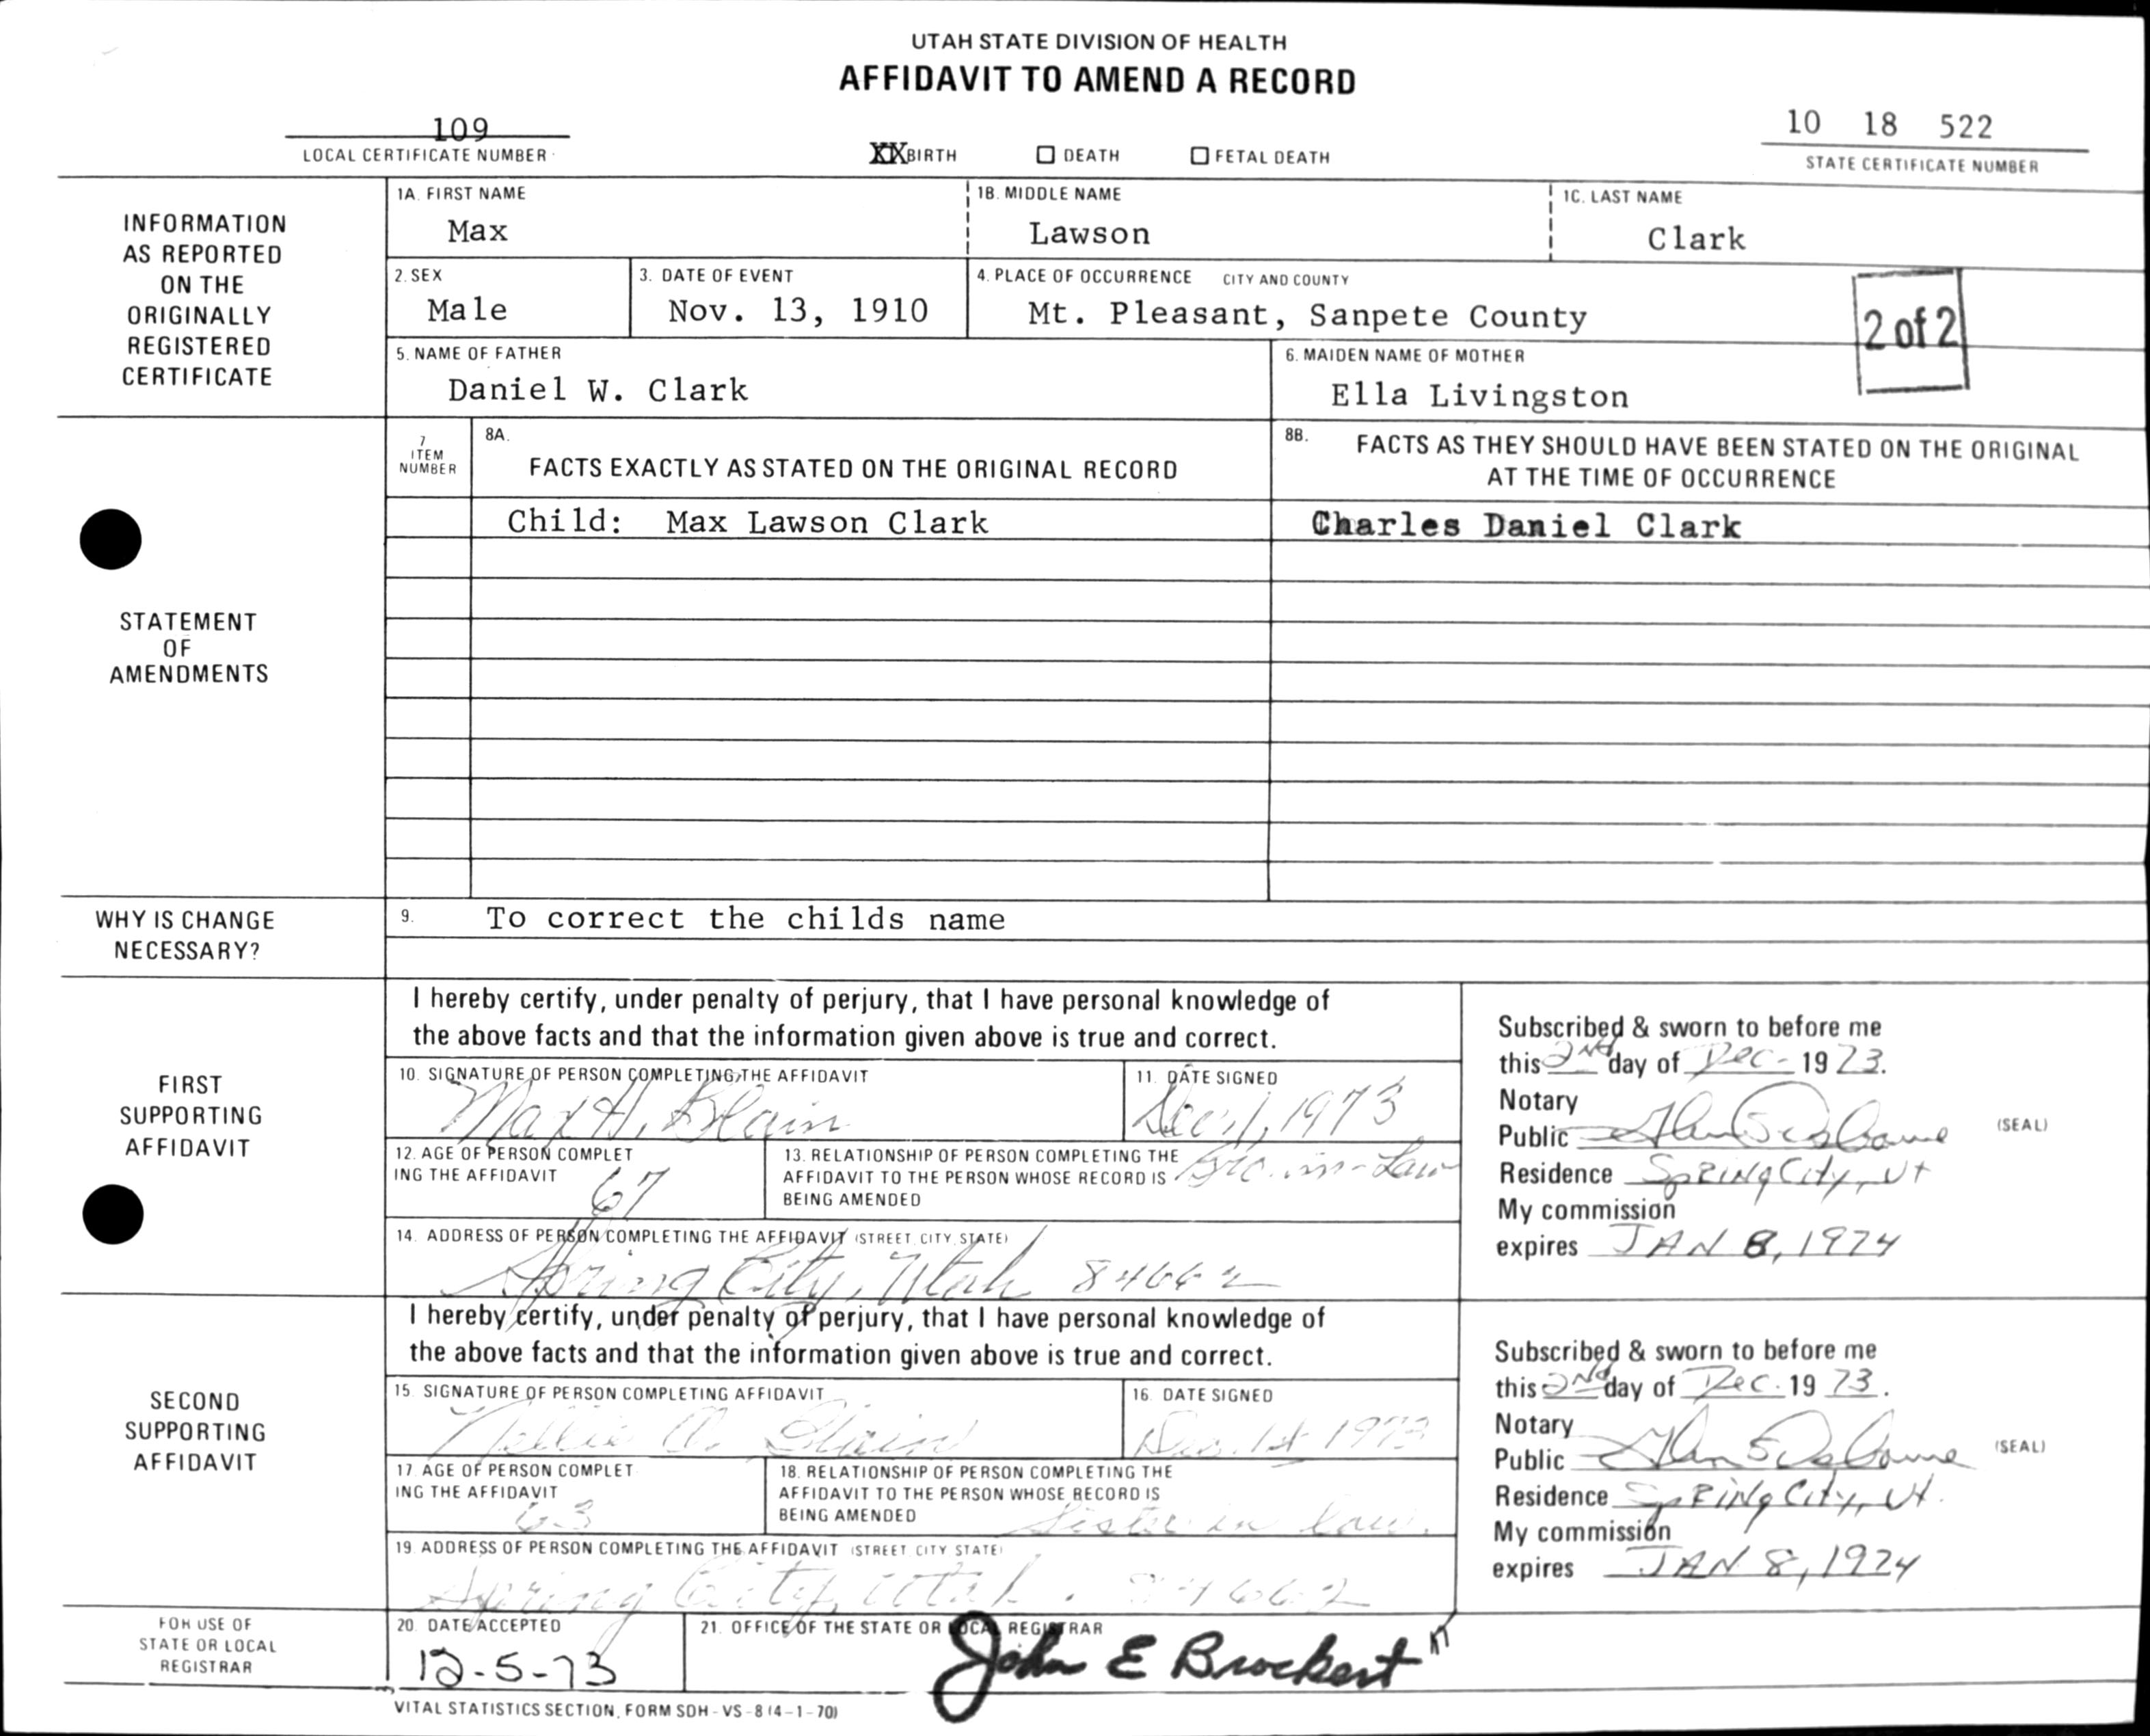 UTAH STATE DIVISION OF HEALTH
AFFIDAVIT TO AMEND A RECORD
109
LOCAL CERTIFICATE NUMBER
XX BIRTH
DEATH
FETAL DEATH
10 18 522
STATE CERTIFICATE NUMBER
INFORMATION
AS REPORTED
ON THE
ORIGINALLY
REGISTERED
CERTIFICATE
1A. FIRST NAME
Max
1B. MIDDLE NAME
Lawson
1C. LAST NAME
Clark
2. SEX
Male
3. DATE OF EVENT
Nov. 13, 1910
4. PLACE OF OCCURRENCE CITY AND COUNTY
Mt. Pleasant, Sanpete County
2 of 2
5. NAME OF FATHER
Daniel W. Clark
6. MAIDEN NAME OF MOTHER
Ella Livingston
STATEMENT
OF
AMENDMENTS
7
ITEM
NUMBER
8A.
FACTS EXACTLY AS STATED ON THE ORIGINAL RECORD
8B. FACTS AS THEY SHOULD HAVE BEEN STATED ON THE ORIGINAL
AT THE TIME OF OCCURRENCE
Child: Max Lawson Clark
Charles Daniel Clark
WHY IS CHANGE
NECESSARY?
9. To correct the childs name
FIRST
SUPPORTING
AFFIDAVIT
I hereby certify, under penalty of perjury, that I have personal knowledge of
the above facts and that the information given above is true and correct.
10. SIGNATURE OF PERSON COMPLETING THE AFFIDAVIT
Max H. Blain
11. DATE SIGNED
Dec. 1, 1973
12. AGE OF PERSON COMPLET
ING THE AFFIDAVIT
67
13. RELATIONSHIP OF PERSON COMPLETING THE
AFFIDAVIT TO THE PERSON WHOSE RECORD IS
BEING AMENDED
Bro. in-Law
14. ADDRESS OF PERSON COMPLETING THE AFFIDAVIT (STREET, CITY, STATE)
Spring City, Utah 84662
Subscribed & sworn to before me
this 2nd day of Dec- 1973.
Notary
Public
(SEAL)
Residence Spring City, Ut
My commission
expires JAN 8, 1974
SECOND
SUPPORTING
AFFIDAVIT
I hereby certify, under penalty of perjury, that I have personal knowledge of
the above facts and that the information given above is true and correct.
15. SIGNATURE OF PERSON COMPLETING AFFIDAVIT
Nellie A. Blain
16. DATE SIGNED
Dec. 1st 1973
17. AGE OF PERSON COMPLET
ING THE AFFIDAVIT
63
18. RELATIONSHIP OF PERSON COMPLETING THE
AFFIDAVIT TO THE PERSON WHOSE RECORD IS
BEING AMENDED
Sister in law.
19. ADDRESS OF PERSON COMPLETING THE AFFIDAVIT (STREET CITY STATE)
Spring City, Utah. 84662
Subscribed & sworn to before me
this 2nd day of Dec. 1973.
Notary
Public Glen S Osborne
(SEAL)
Residence Spring City, Ut.
My commission
expires JAN 8, 1974
FOR USE OF
STATE OR LOCAL
REGISTRAR
20. DATE ACCEPTED
12-5-73
21. OFFICE OF THE STATE OR LOCAL REGISTRAR
John E Brockert
VITAL STATISTICS SECTION, FORM SDH-VS-8 (4-1-70)